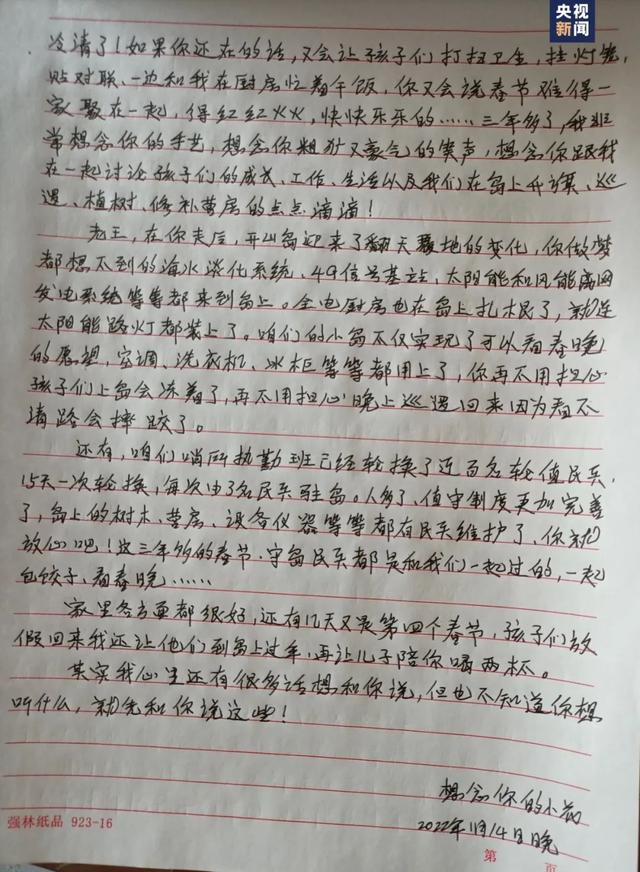 央视
新闻
冷清了！如果你还在的话，又会让孩子们打扫卫生，挂灯笼，
贴对联、一边和我在厨房忙着午饭，你又会说春节难得一
家聚在一起，得红红火火，快快乐乐的……三年多了，我非
常想念你的手艺，想念你粗犷又豪气的笑声，想念你跟我
在一起讨论孩子们的成长、工作、生活以及我们在岛上升旗、巡
逻、植树、修补营房的点点滴滴！
老王，在你走后，开山岛迎来了翻天覆地的变化，你做梦
都想不到的海水淡化系统、4G信号基站，太阳能和风能离网
发电系统等等都来到岛上。全电厨房也在岛上扎根了，就连
太阳能路灯都装上了。咱们的小岛不仅实现了可以看春晚
的愿望，空调、洗衣机、冰柜等等都用上了，你再不用担心
孩子们上岛会冻着了，再不用担心晚上巡逻回来因为看不
清路会摔跤了。
还有，咱们哨所执勤班已经轮换了近百名轮值民兵，
15天一次轮换，每次由3名民兵驻岛。人多了、值守制度更加完善
了，岛上的树木、营房、设备仪器等等都有民兵维护了，你就
放心吧！这三年多的春节，守岛民兵都是和我们一起过的，一起
包饺子、看春晚……
家里各方面都很好，还有几天又是第四个春节，孩子们放
假回来我还让他们到岛上过年，再让儿子陪你喝两杯。
其实我心里还有很多话想和你说，但也不知道你想
听什么，就先和你说这些！
想念你的小花
2022年1月14日晚
强林纸品 923-16
第 页